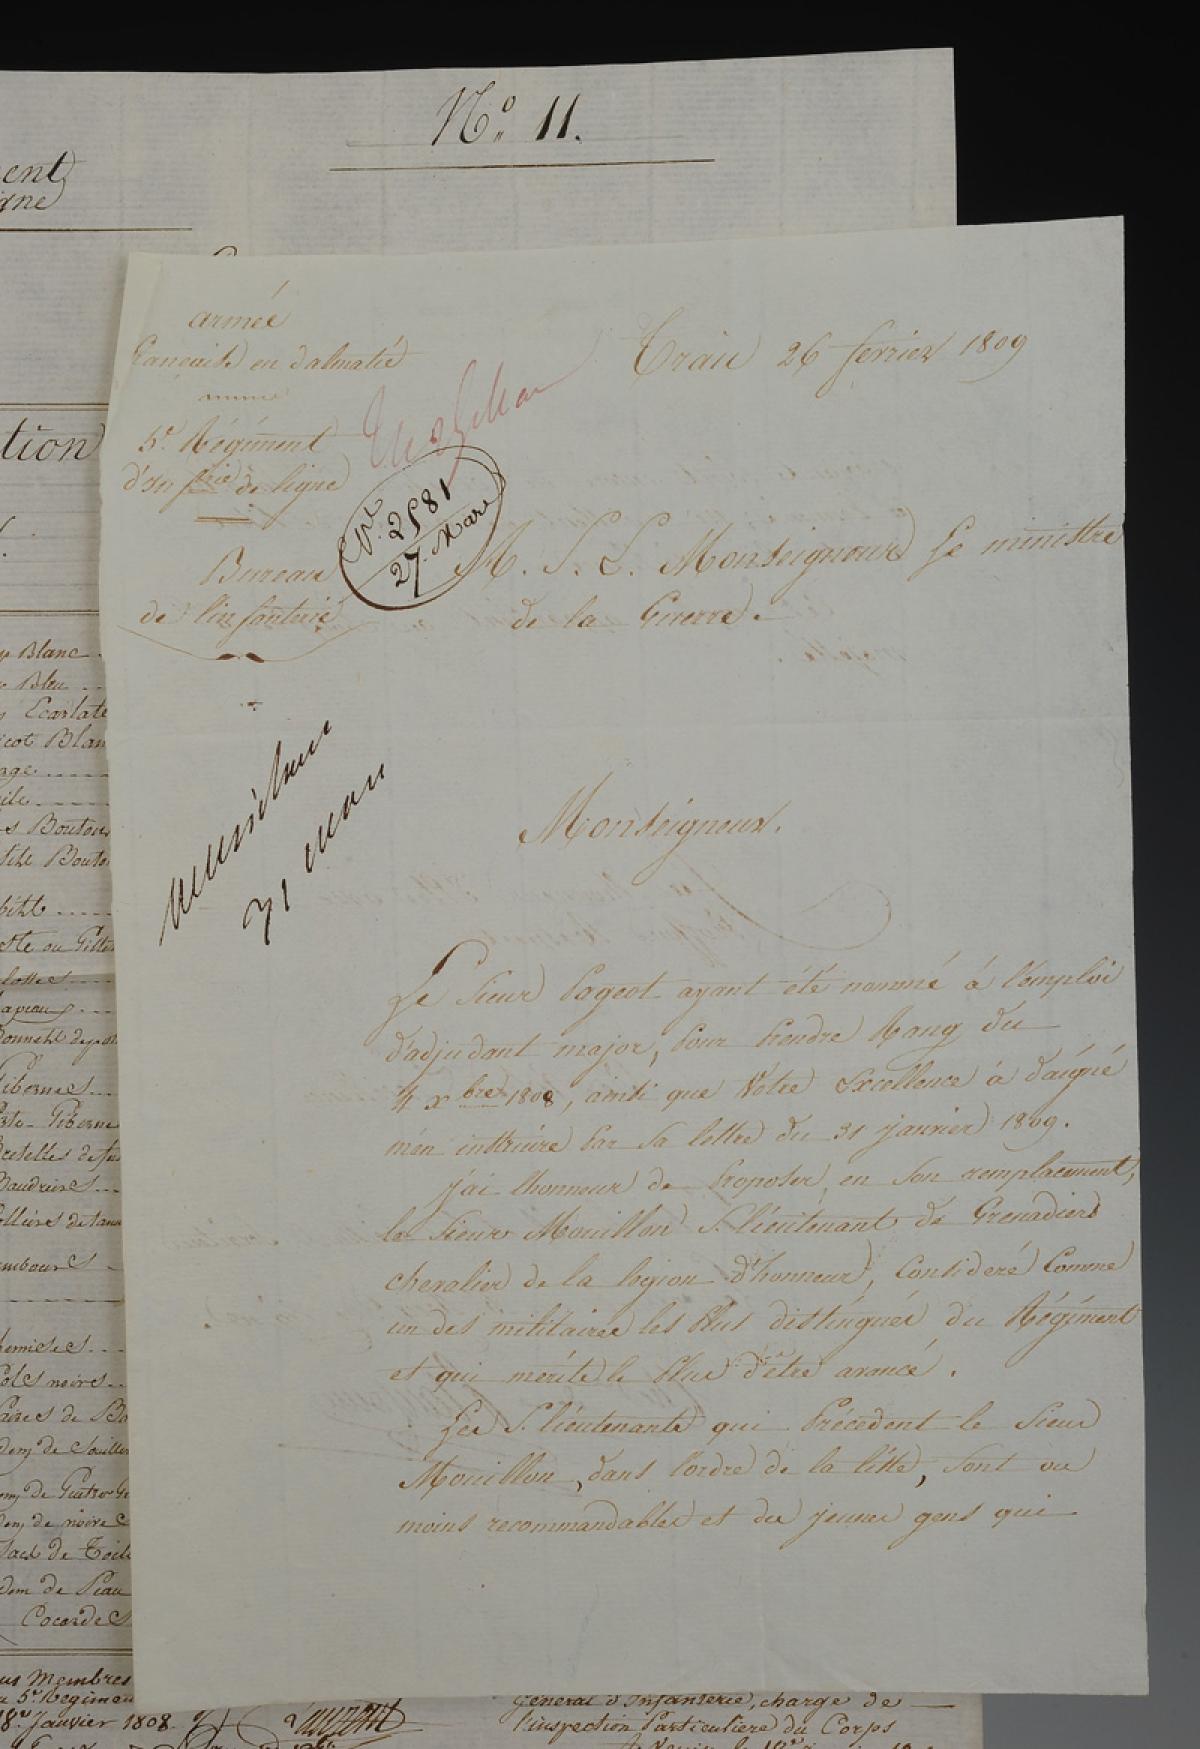 N.o 11.
ent
igne
tion
Blanc
Bleu
Ecarlate
icot Blan
s Bouton
tits Bouto
ste ou Gilet
lottes
apeau
Bonnets de po
Gibernes
rte-Giberne
Bretelles de fu
Baudriers
Colliers de tam
mbours
hemises
Cols noirs
aires de Ba
dem de noires
Sacs de Toile
dem de Peau
Cocardes
us Membres
u 5.e Regimen
8.e Janvier 1808.
Général d'Infanterie, chargé de
l'inspection Particuliere du Corps
armée
françaite en dalmatie
5.e Régiment
d'Infrie de ligne
Bureau
de l'infanterie
Trau 26 février 1809
N.t 2581
27. Mars
A. S. E. Monseigneur Le ministre
de la Guerre.
31 mars
Monseigneur.
Le Sieur Pageot ayant été nommé à l'emploi
d'adjudant major, pour prendre Rang du
4 xbre 1808, ainsi que Votre Excellence à daigné
m'en instruire par Sa lettre du 31 janvier 1809.
j'ai l'honneur de proposer, en Son remplacement,
le Sieur Mouillon S. lieutenant de Grenadiers
chevalier de la legion d'honneur, Consideré Comme
un des militaires les Plus distingués du Régiment
et qui mérite le Plus d'être avancé.
Les S. lieutenants qui Précédent le Sieur
Mouillon, dans l'ordre de la liste, Sont ou
moins recommandables et des jeunes gens qui